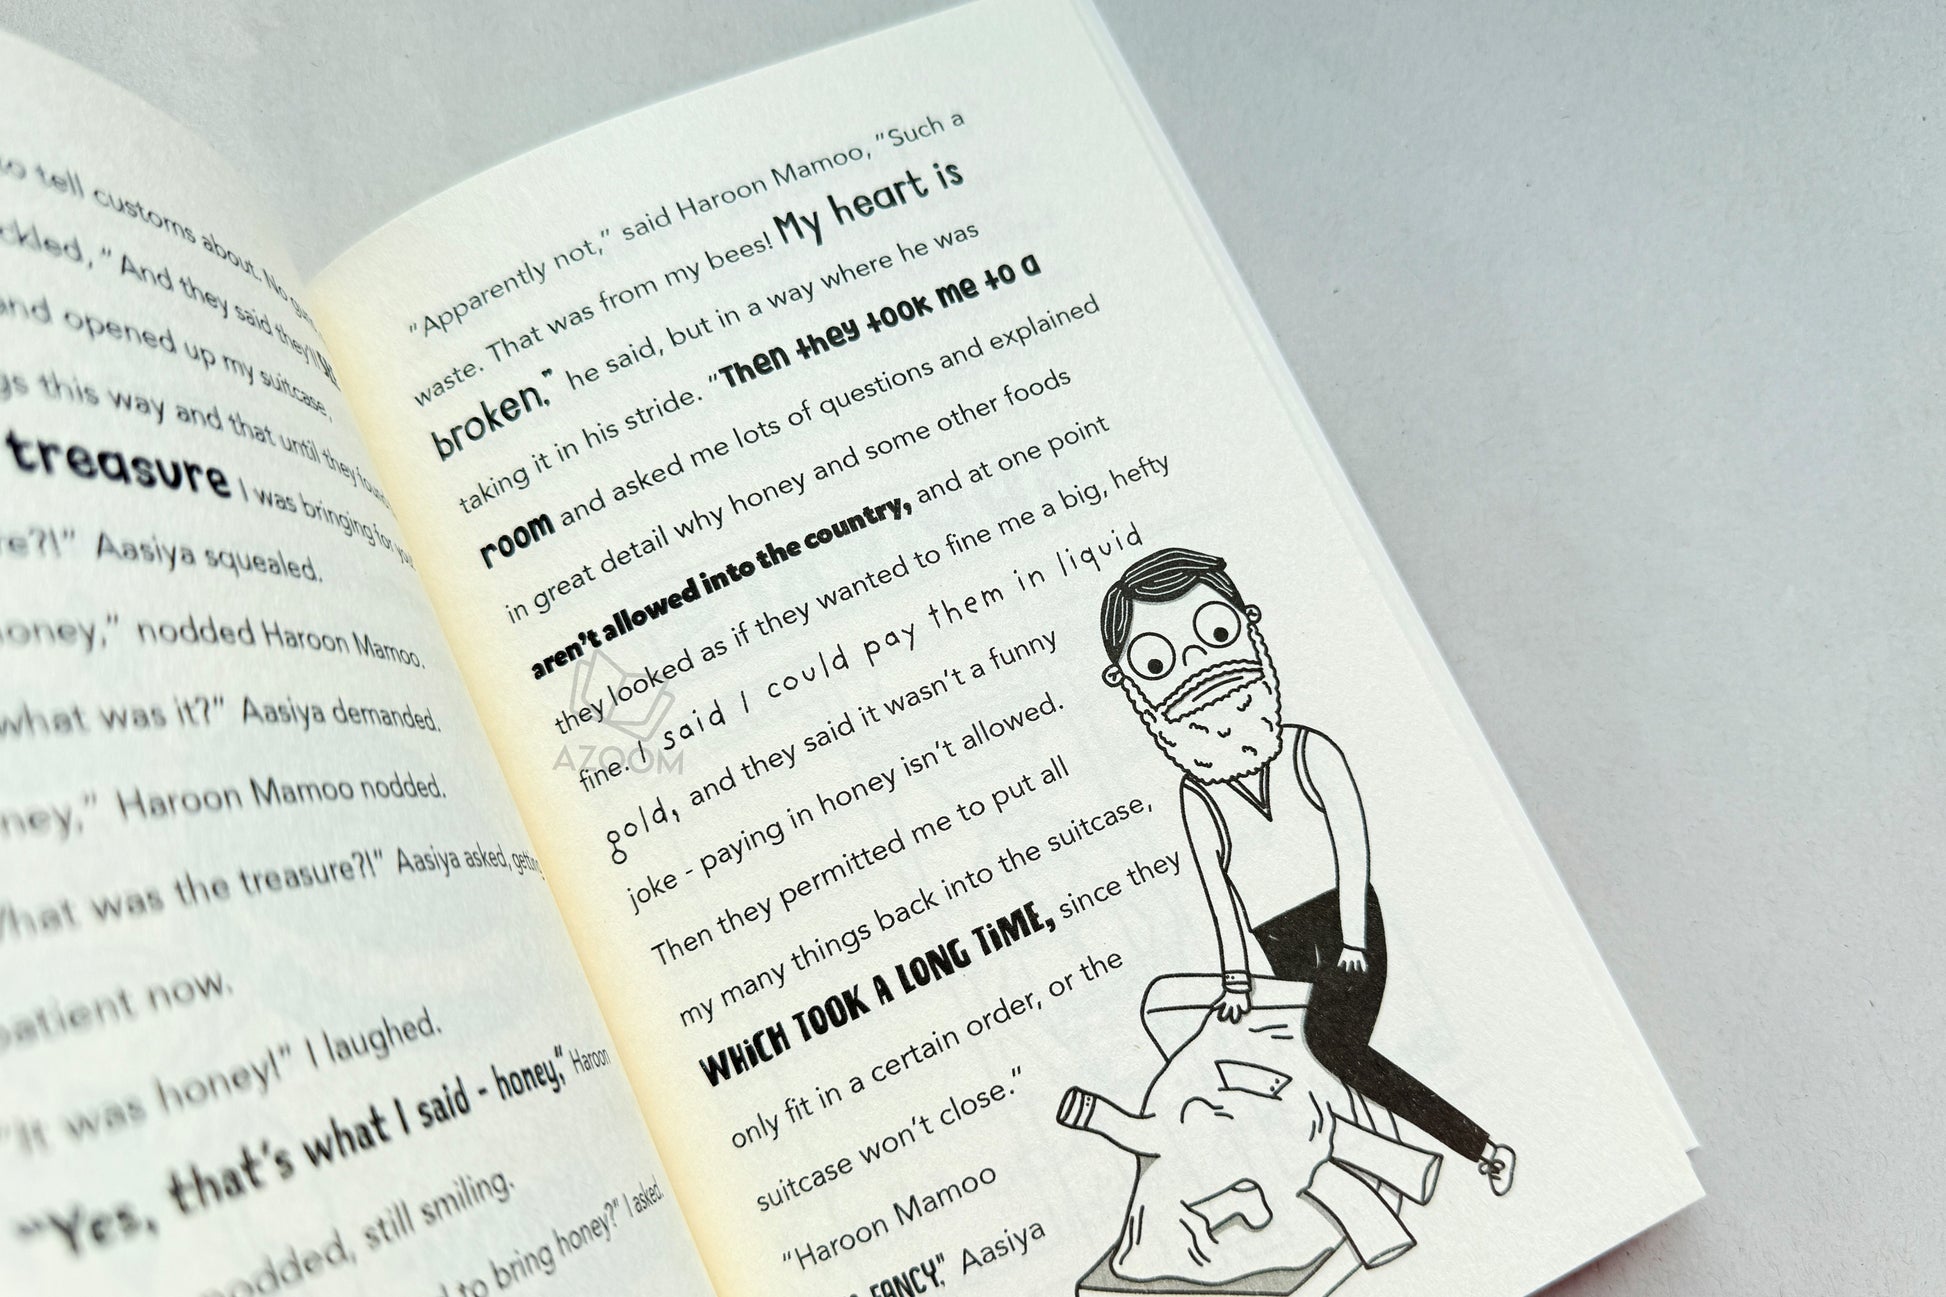 to tell customs about. No
"And they said they'll
and opened up my suitcase,
this way and that until they found
treasure I was bringing for you
Aasiya squealed.
nodded Haroon Mamoo.
what was it?" Aasiya demanded.
Haroon Mamoo nodded.
What was the treasure?!" Aasiya asked, getting
now.
"It was honey!" I laughed.
"Yes, that's what I said - honey," Haroon
nodded, still smiling.
to bring honey?" I asked.
"Apparently not," said Haroon Mamoo, "Such a
waste. That was from my bees! My heart is
broken," he said, but in a way where he was
taking it in his stride. "Then they took me to a
room and asked me lots of questions and explained
in great detail why honey and some other foods
aren't allowed into the country, and at one point
they looked as if they wanted to fine me a big, hefty
fine. I said I could pay them in liquid
gold, and they said it wasn't a funny
joke - paying in honey isn't allowed.
Then they permitted me to put all
my many things back into the suitcase,
WHiCH TOOK A LONG TiME, since they
only fit in a certain order, or the
suitcase won't close."
"Haroon Mamoo
FANCY," Aasiya
AZOOM